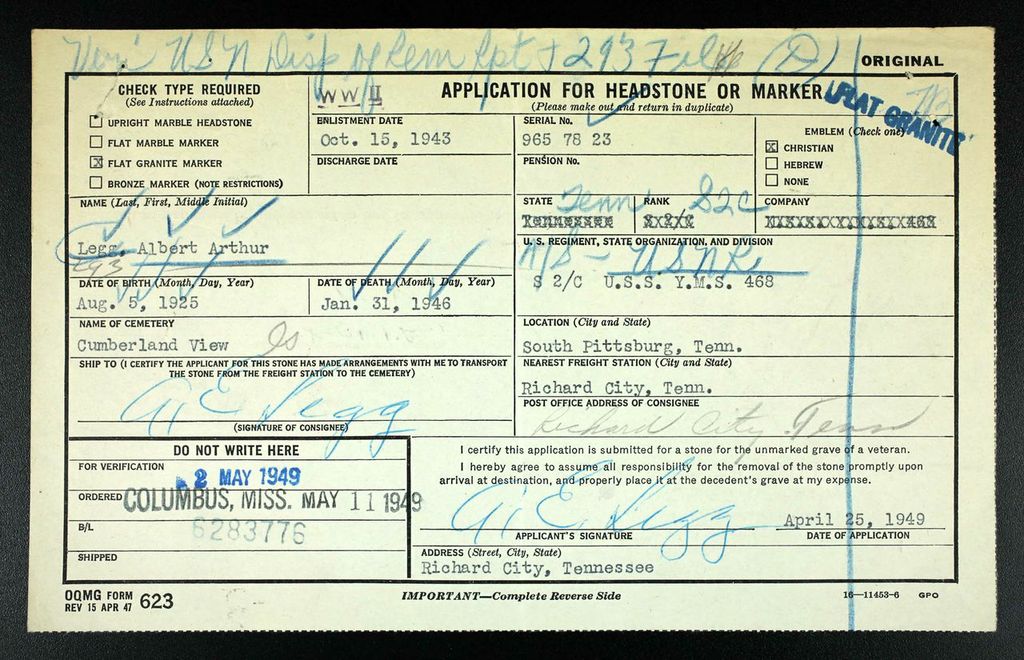 Veri USN Disp of Rem Rpt + 293 File (D)
ORIGINAL
CHECK TYPE REQUIRED
(See Instructions attached)
UPRIGHT MARBLE HEADSTONE
FLAT MARBLE MARKER
X FLAT GRANITE MARKER
BRONZE MARKER (NOTE RESTRICTIONS)
WW II
APPLICATION FOR HEADSTONE OR MARKER
(Please make out and return in duplicate)
FLAT GRANITE
ENLISTMENT DATE
Oct. 15, 1943
DISCHARGE DATE
SERIAL No.
965 78 23
PENSION No.
EMBLEM (Check one)
X CHRISTIAN
HEBREW
NONE
NAME (Last, First, Middle Initial)
Legg, Albert Arthur
293
STATE
Tenn
Tennessee
RANK
S2C
S 2/C
COMPANY
468
U. S. REGIMENT, STATE ORGANIZATION, AND DIVISION
USNR
S 2/C U.S.S. Y.M.S. 468
DATE OF BIRTH (Month, Day, Year)
Aug. 5, 1925
DATE OF DEATH (Month, Day, Year)
Jan. 31, 1946
NAME OF CEMETERY
Cumberland View
LOCATION (City and State)
South Pittsburg, Tenn.
SHIP TO (I CERTIFY THE APPLICANT FOR THIS STONE HAS MADE ARRANGEMENTS WITH ME TO TRANSPORT
THE STONE FROM THE FREIGHT STATION TO THE CEMETERY)
A. E. Legg
(SIGNATURE OF CONSIGNEE)
NEAREST FREIGHT STATION (City and State)
Richard City, Tenn.
POST OFFICE ADDRESS OF CONSIGNEE
Richard City Tenn
DO NOT WRITE HERE
FOR VERIFICATION
2 MAY 1949
ORDERED
COLUMBUS, MISS. MAY 11 1949
B/L
6283776
SHIPPED
I certify this application is submitted for a stone for the unmarked grave of a veteran.
I hereby agree to assume all responsibility for the removal of the stone promptly upon
arrival at destination, and properly place it at the decedent's grave at my expense.
A. E. Legg
April 25, 1949
APPLICANT'S SIGNATURE
DATE OF APPLICATION
ADDRESS (Street, City, State)
Richard City, Tennessee
OQMG FORM
REV 15 APR 47 623
IMPORTANT—Complete Reverse Side
16—11453-6 GPO